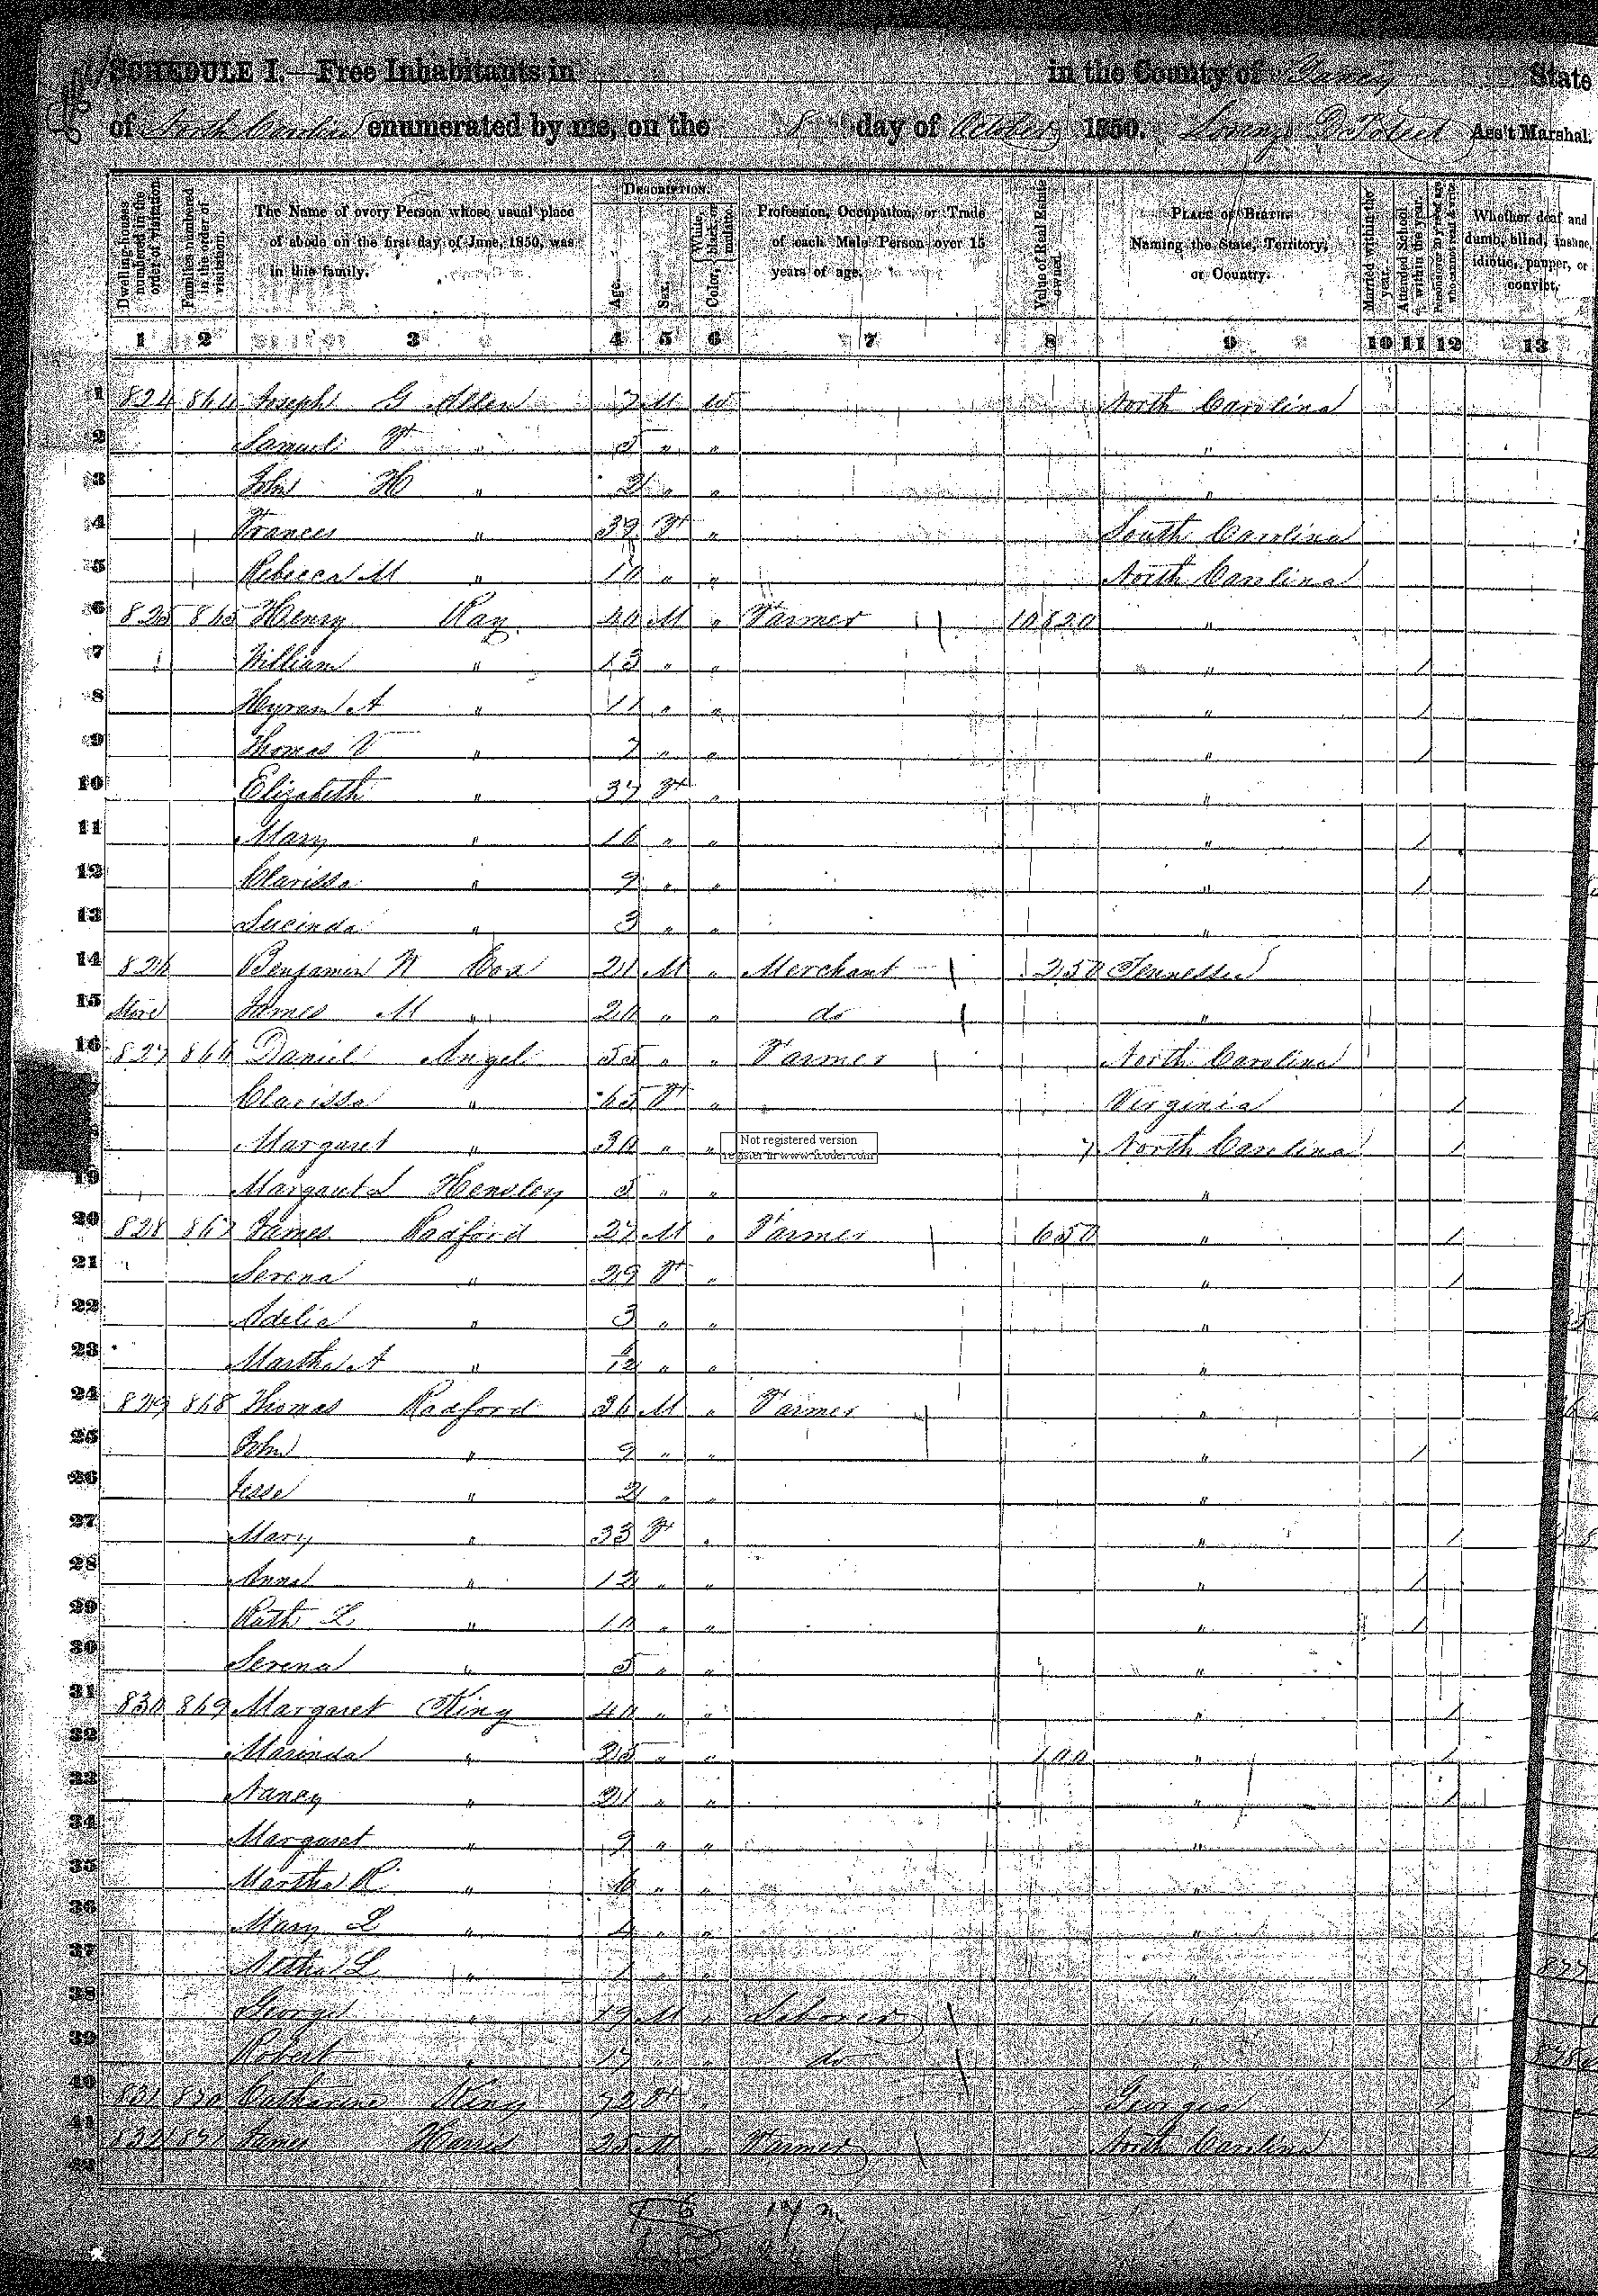 SCHEDULE I.—Free Inhabitants in in the County of Yancey State
of North Carolina enumerated by me, on the 8 day of October 1850. Lorenzo D Poteet Ass't Marshal.
Dwelling-houses numbered in the order of visitation.
Families numbered in the order of visitation.
The Name of every Person whose usual place of abode on the first day of June, 1850, was in this family.
Description.
Age.
Sex.
Color, White, black, or mulatto.
Profession, Occupation, or Trade of each Male Person over 15 years of age.
Value of Real Estate owned.
Place of Birth. Naming the State, Territory, or Country.
Married within the year.
Attended School within the year.
Persons over 20 y'rs of age who cannot read & write.
Whether deaf and dumb, blind, insane, idiotic, pauper, or convict.
1 2 3 4 5 6 7 8 9 10 11 12 13
1 824 864 Joseph G Allen 7 M W North Carolina
2 Samuel F " 5 " " "
3 John H " 2 " " "
4 Frances " 39 F " South Carolina
5 Rebecca M " 10 " " North Carolina
6 825 865 Henry Ray 40 M " Farmer 10820 "
7 William " 13 " " " 1
8 Hyram A " 11 " " " 1
9 Thomas V " 7 " " " 1
10 Elizabeth " 37 F " "
11 Mary " 16 " " " 1
12 Clarissa " 9 " " " 1
13 Lucinda " 3 " " "
14 826 Benjamin W Cox 21 M " Merchant 250 Tennessee
15 James M " 20 " " do "
16 827 866 Daniel Angel 55 " " Farmer North Carolina
Clarissa " 65 F " Virginia 1
Margaret " 30 " " North Carolina 1
Not registered version
register in www.tcoder.com
19 Margaret Hensley 5 " " "
20 828 867 James Radford 27 M " Farmer 650 " 1
21 Serena " 29 F " " 1
22 Adelia " 3 " " "
23 Martha A " /12 " " "
24 829 868 Thomas Radford 36 M " Farmer "
25 John " 9 " " " 1
26 Jesse " 2 " " "
27 Mary " 33 F " " 1
28 Anna " 12 " " " 1
29 Ruth L " 10 " " " 1
30 Serena " 5 " " "
31 830 869 Margaret King 40 " " " 1
32 Marinda " 25 " " 100 " 1
33 Nancy " 21 " " " 1
34 Margaret " 9 " " "
35 Martha R " 6 " " "
36 Mary L " 4 " " "
37 L " 1 " " "
38 George " 19 M " Laborer "
39 Robert " 17 " " do "
40 831 870 Catharine King 72 F " Georgia 1
41 832 871 James Harris 25 M " Farmer North Carolina
42